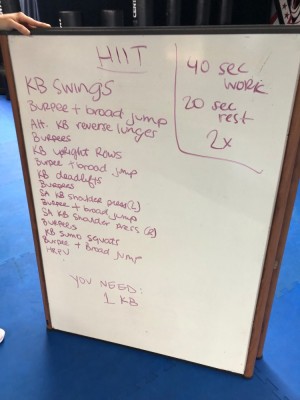 HIIT
KB SWINGS
BURPEE + broad jump
Alt. KB reverse lunges
Burpees
KB upright Rows
Burpee + broad jump
KB deadlifts
Burpees
SA KB shoulder press (L)
Burpee + broad jump
SA KB shoulder press (R)
Burpees
KB sumo squats
Burpee + Broad Jump
HRPU
YOU NEED:
1 KB
40 sec
work
20 sec
rest
2x